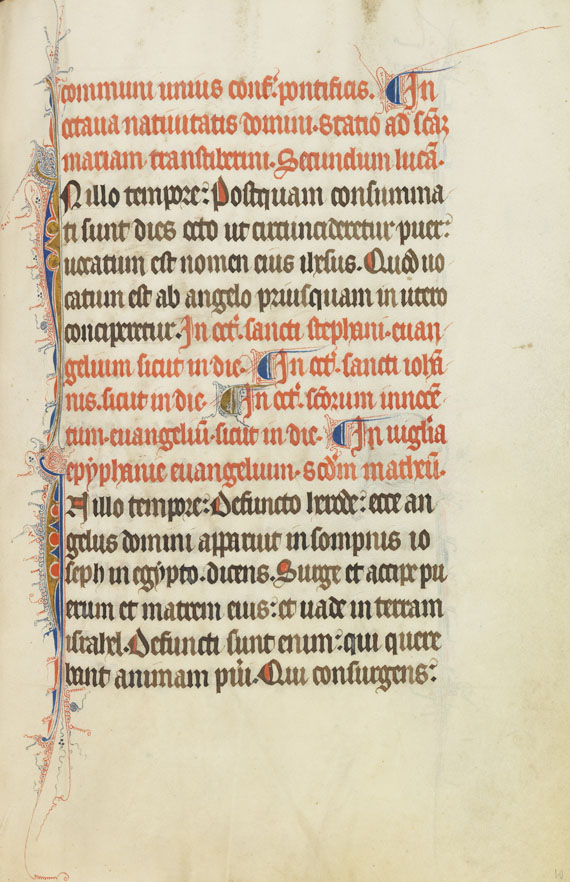 communi unius conf. pontificis. In
octaua natiuitatis domini. Statio ad scāz
mariam transtiberini. Secundum lucā.
N illo tempore: Postquam consumma
ti sunt dies octo ut circuncideretur puer:
uocatum est nomen eius ihesus. Quod uo
catum est ab angelo priusquam in utero
conciperetur. In oct. sancti stephani. euan
gelium sicut in die. In oct. sancti iohā
nis. sicut in die. In oct. scōrum innocē
tum. euangeliū. sicut in die. In uiglia
epyphanie euangelium. scdm matheū.
N illo tempore: Defuncto herode: ecce an
gelus domini apparuit in sompnis io
seph in egypto. dicens. Surge et accipe pu
erum et matrem eius: et uade in terram
israhel. Defuncti sunt enim: qui quere
bant animam pūi. Qui consurgens: